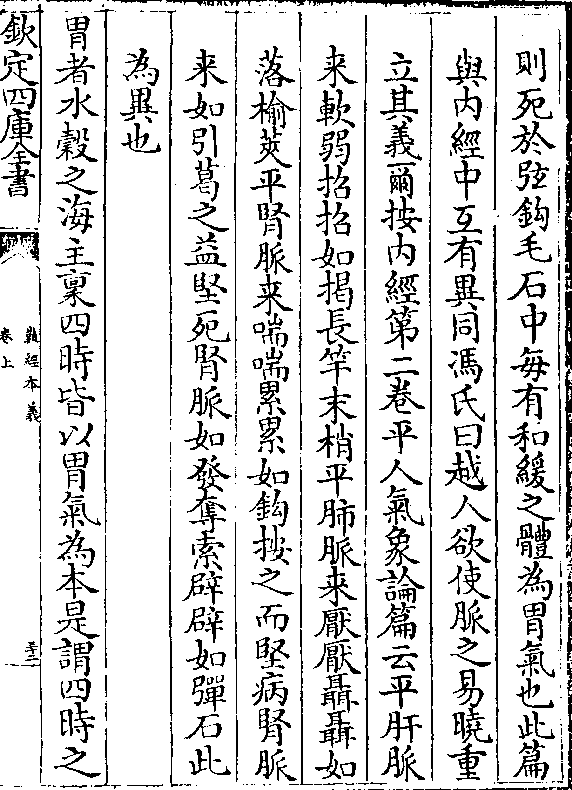 則死於弦鈎毛石中每有和緩之體為胃氣也此篇
與内經中互有異同馮氏曰越人欲使脈之易曉重
立其義爾按内經第二卷平人氣象論篇云平肝脈
来軟弱招招如掲長竿末梢平肺脈来厭厭聶聶如
落榆莢平腎脈来喘喘累累如鈎按之而堅病腎脈
来如引葛之益堅死腎脈如發奪索辟辟如彈石此
為異也
胃者水榖之海主稟四時皆以胃氣為本是謂四時之
欽定四庫全書
難經本義
卷上